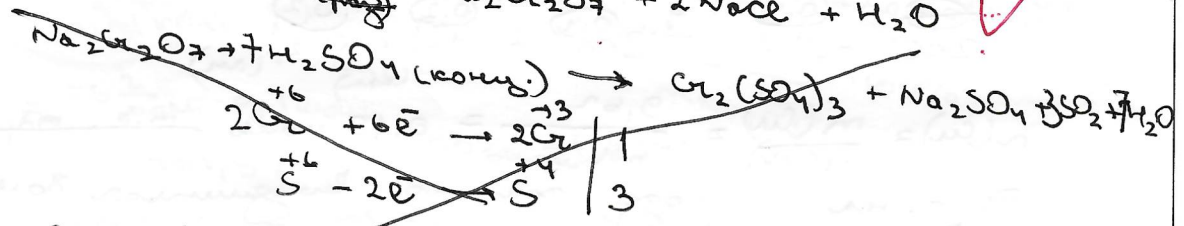 Cr₂O₇ + 2NaCl + H₂O
Na₂Cr₂O₇ + 7H₂SO₄ (конц.) → Cr₂(SO₄)₃ + Na₂SO₄ + 3SO₂ + 7H₂O
2Cr⁺⁶ + 6ē → 2Cr⁺³ | 1
S⁺⁶ - 2ē → S⁺⁴ | 3